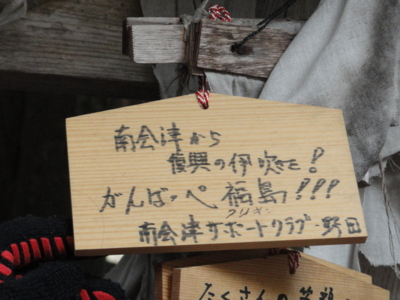 南会津から
復興の伊吹を!
がんばっぺ福島!!!
南会津サポートクラブ・野田
たくさんの笑顔